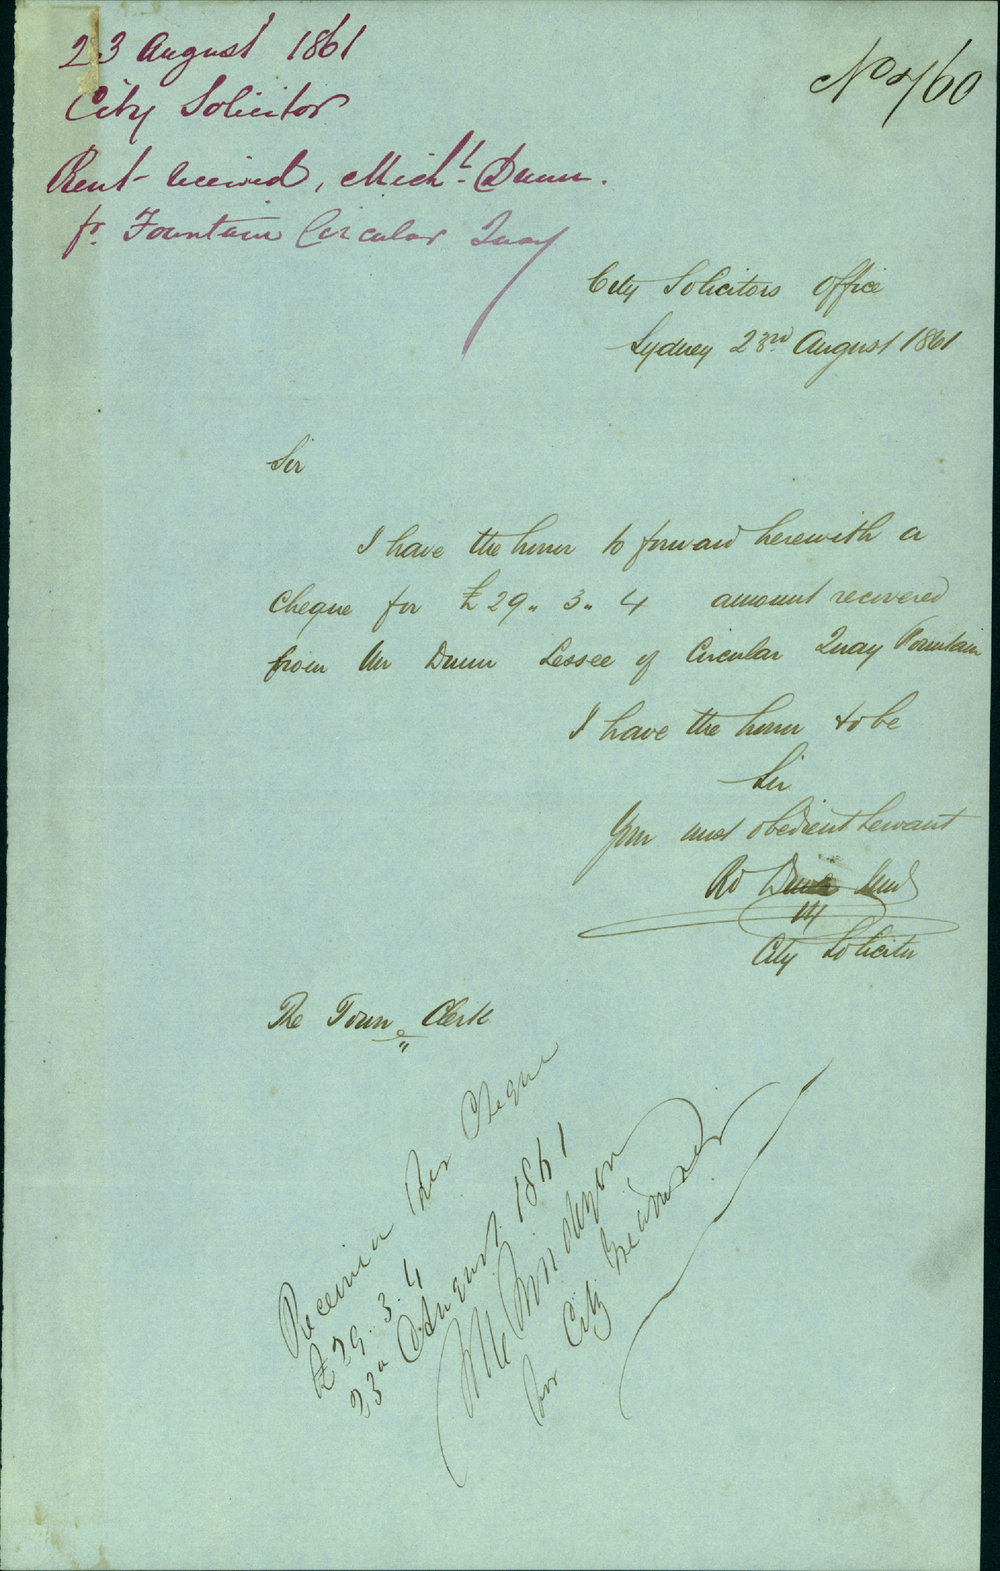 23 August 1861
City Solicitor
Rent received, Mich.l Dunn.
fr. Fountain Circular Quay
No 760
City Solicitors Office
Sydney 23rd August 1861
Sir
I have the honor to forward herewith a
cheque for £29.. 3.. 4 amount recovered
from Mr Dunn Lessee of Circular Quay Fountain
I have the honor to be
Sir
Your most obedient Servant
Rd
City Solicitor
The Town Clerk
Received per Cheque
£29. 3. 4
23d August 1861
for City Treasurer